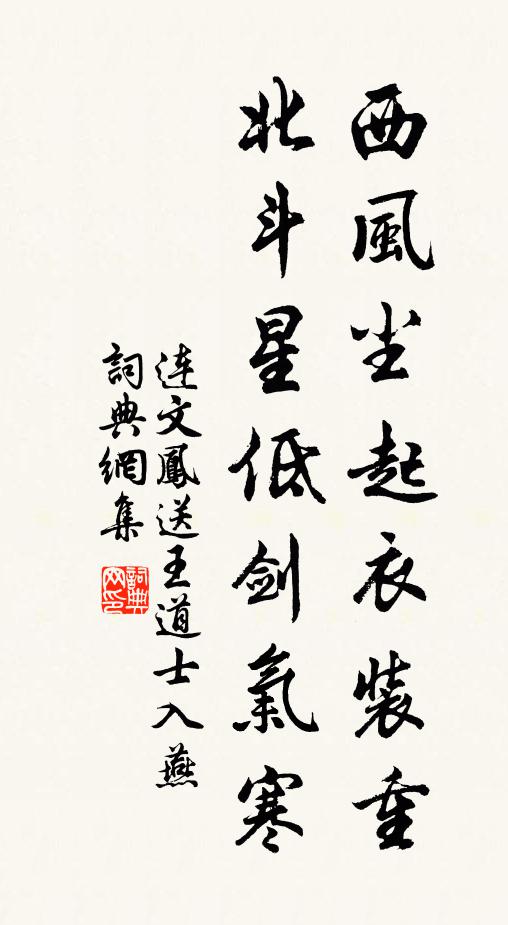 西風尘起衣装重
北斗星低剑氣寒
连文鳳送王道士入燕
詞典網集
詞典網印